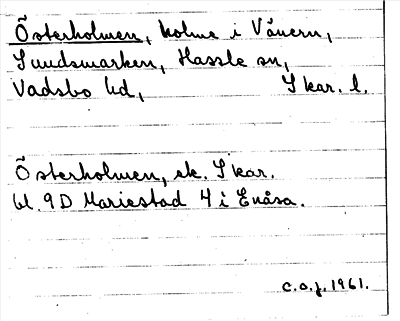 Österholmen, holme i Vänern,
Sundsmarken, Hassle sn,
Vadsbo hd, Skar. l.
Österholmen, ek. Skar.
bl. 9D Mariestad 4 i Enåsa.
C.a.j. 1961.